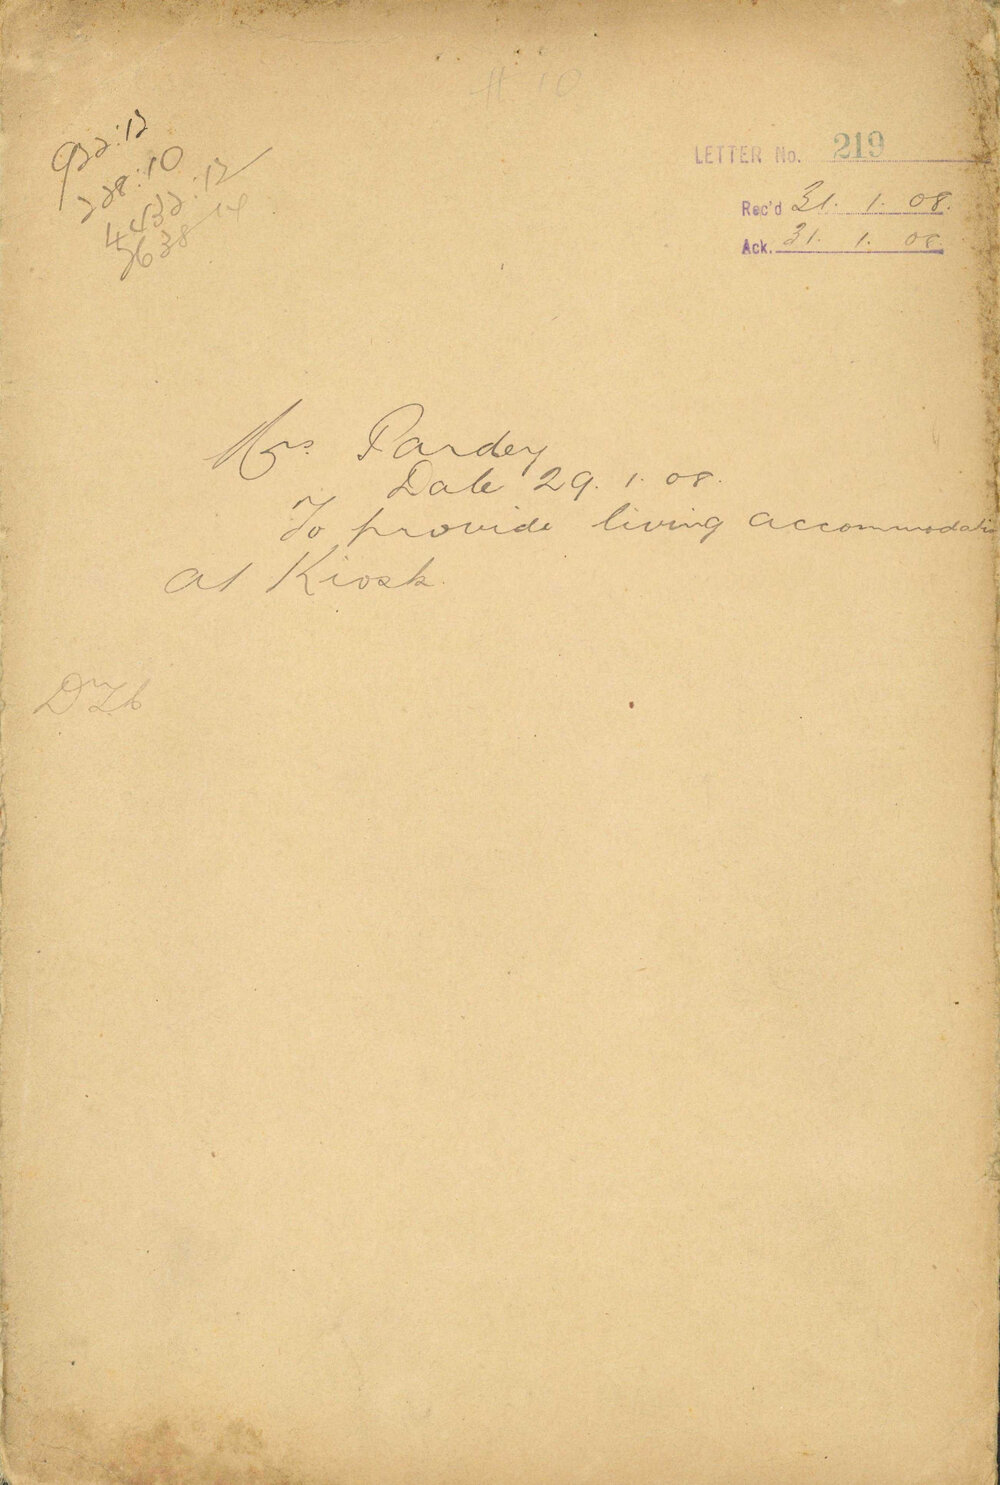 H 10
922:12
228:10
4432:12
5638 14
LETTER No. 219
Rec'd 31. 1. 08.
Ack. 31. 1. 08.
Mrs Pardey
Date 29. 1. 08.
To provide living accommodatio
at Kiosk.